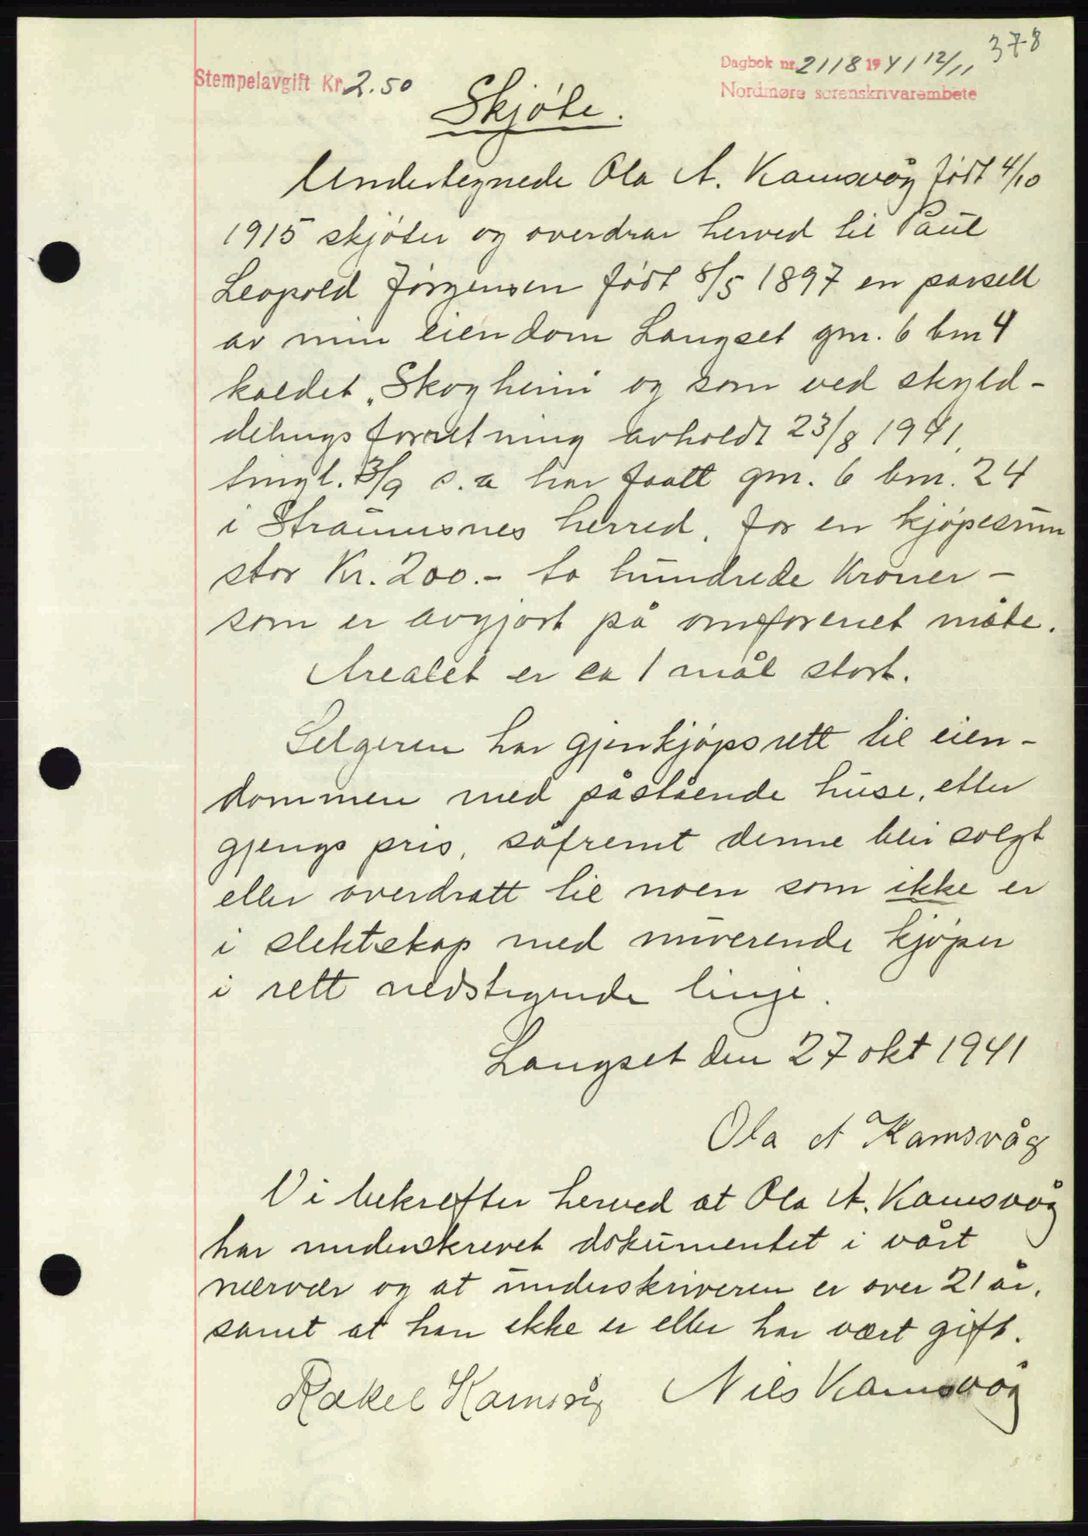 378
Stempelavgift Kr. 2.50
Dagbok nr. 2118 1941 12/11
Nordmøre sorenskrivarembete
Skjøte.
Undertegnede Ola A. Kamsvåg født 4/10
1915 skjøter og overdrar herved til Paul
Leopold Jørgensen født 8/5 1897 en parsell
av min eiendom Langset gnr. 6 bnr 4
kaldet „Skogheim" og som ved skyld-
delingsforretning avholdt 23/8 1941,
tingl. 3/9 s.a har faatt gnr. 6 bnr. 24
i Straumsnes herred, for en kjøpesum
stor Kr. 200.- to hundrede Kroner -
som er avgjort på omforenet måte.
Arealet er ca 1 mål stort.
Selgeren har gjenkjøpsrett til eien-
dommen med påstående huse, etter
gjengs pris, såfremt denne blir solgt
eller overdratt til noen som ikke er
i slektskap med nuverende kjøper
i rett nedstigende linje.
Langset den 27 okt 1941
Ola A Kamsvåg
Vi bekrefter herved at Ola A. Kamsvåg
har underskrevet dokumentet i vårt
nærvær og at underskriveren er over 21 år,
samt at han ikke er eller har vært gift.
Rakel Kamsvåg Nils Kamsvåg